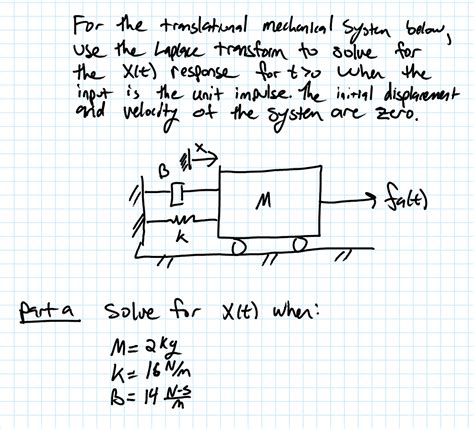 For the translational mechanical system below,
use the Laplace transform to solve for
the X(t) response for t>0 when the
input is the unit impulse. The initial displacement
and velocity of the system are zero.
x
B
M
fa(t)
K
Part a Solve for X(t) when:
M= 2 kg
K= 16 N/m
B= 14 N-s/m